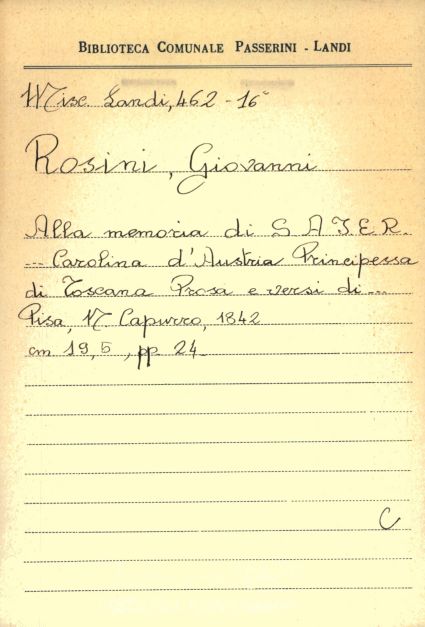 BIBLIOTECA COMUNALE PASSERINI - LANDI
Misc. Landi, 462 - 16°
Rosini, Giovanni
Alla memoria di S A I E R.
... Carolina d'Austria Principessa
di Toscana Prosa e versi di ...
Pisa, N. Capurro, 1842
cm 19,5, pp. 24.
C